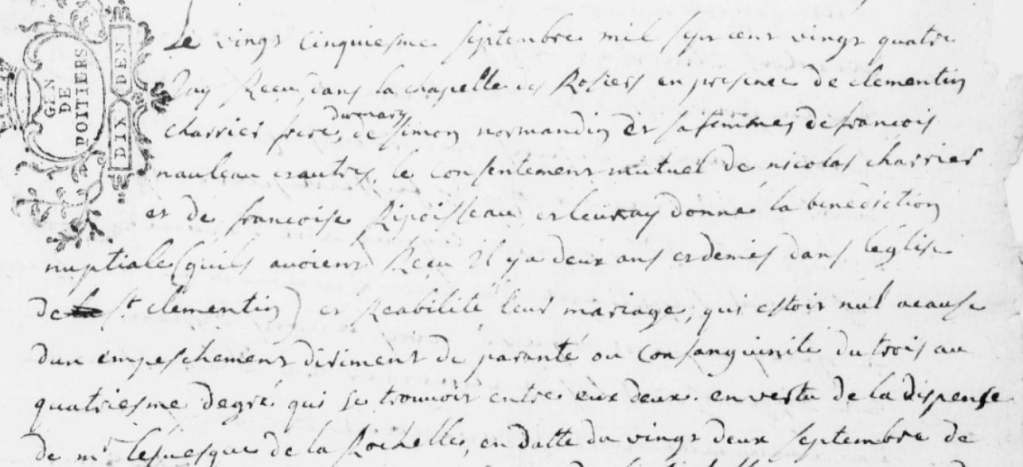 GEN
DE
POITIERS
DIX DEN
Le vingt cinquiesme septembre mil sept cent vingt quatre
J'ay Receu dans la chapelle des Rosiers en presence de clementin
du mary
charrier frere, de simon normandin et sa femme, de francois
nauleau et autres, le consentement mutuel de nicolas charrier
et de francoise Ripoisseau et leur ay donné la benediction
nuptiale (quils avoient Receu Il y a deux ans et demies dans l'eglise
de la St clementin) et Reabilité leur mariage, qui estoit nul acause
dun empeschement diriment de paranté ou consanguinité du trois au
quatriesme degré qui se trouvoit entre eux deux, en vertu de la dispense
de mr lesvesque de la Rochelle, en datte du vingt deux septembre de